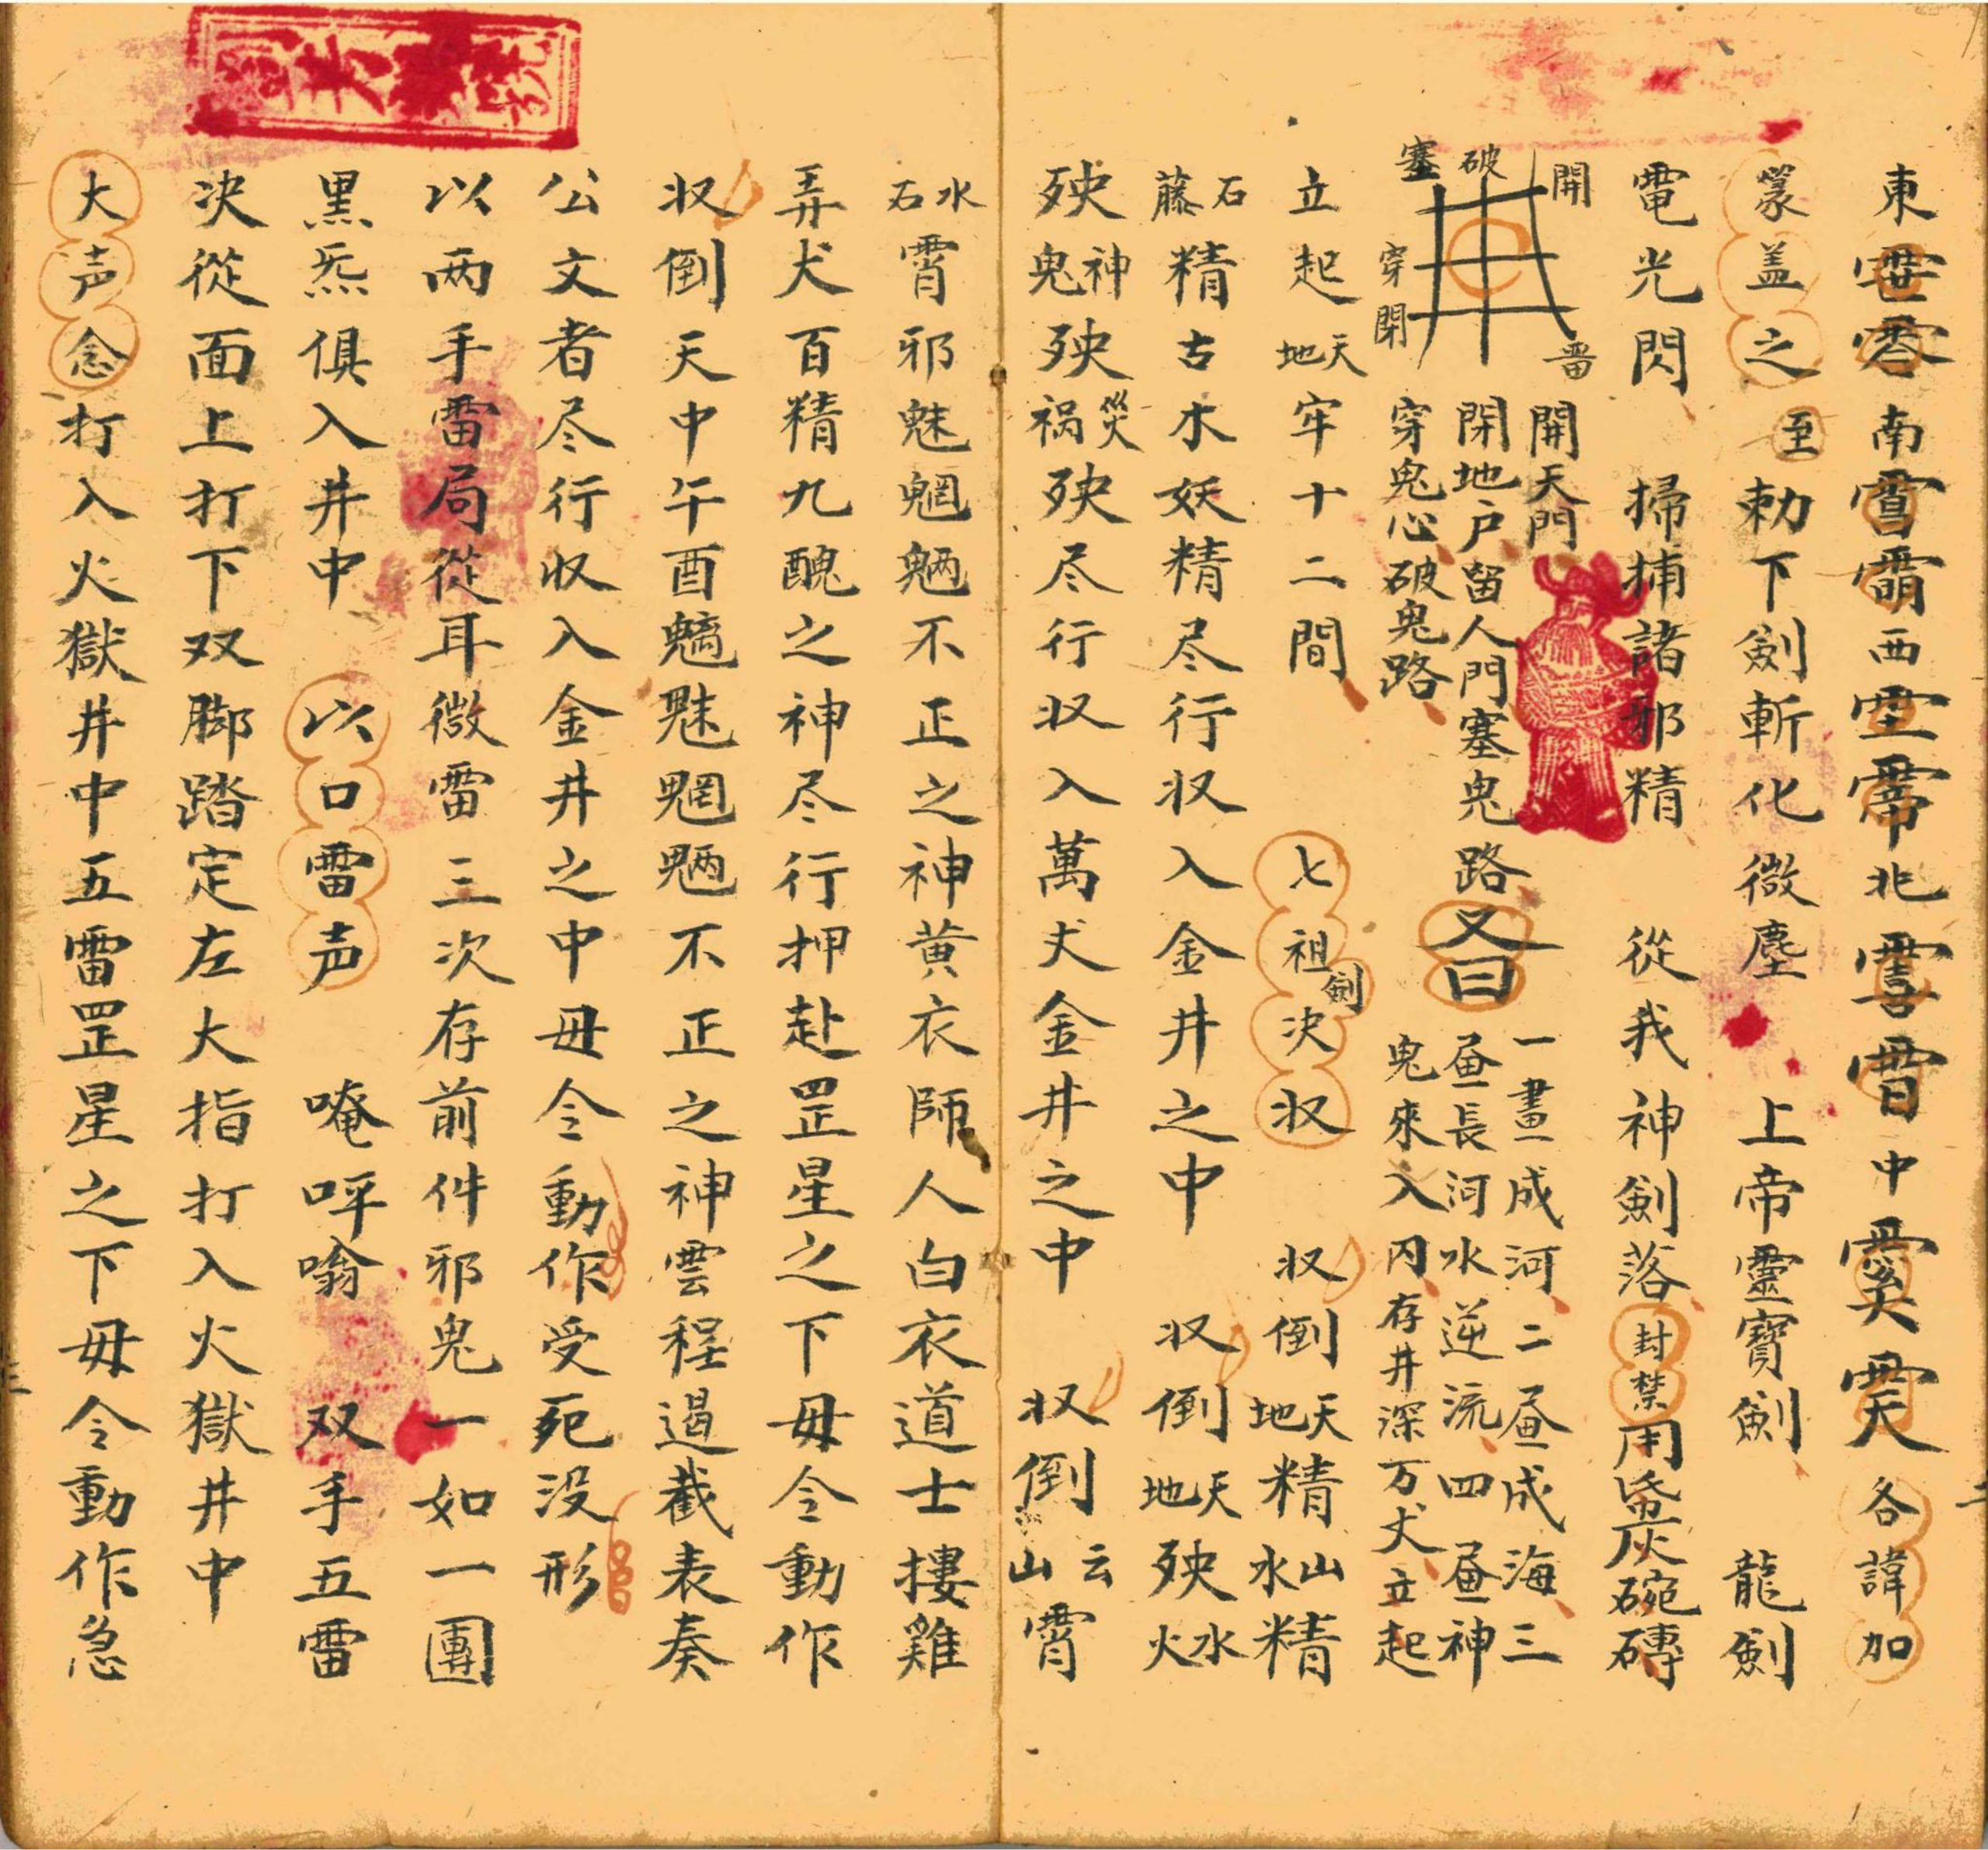 東 南 西 北 中 各諱加
篆盖之 至 勅下劍斬化微塵 上帝靈寳劍 龍劍
電光閃 掃捕諸邪精 從我神劍落 封禁 用 灰碗磚
開
破
塞
穿
閉
畱
開天門
閉地户留人門塞鬼路
穿鬼心破鬼路
又曰
一畫成河二昼成海三
昼長河水逆流四昼神
鬼來入内存井深万丈立起
立起天地牢十二間 七祖劍决収 収倒天地精山水精
石藤精古木妖精尽行収入金井之中 収倒天地殃水火
殃神鬼殃災禍殃尽行収入萬丈金井之中 収倒云山霄
水石霄邪魅魍魎不正之神黄衣師人白衣道士摟雞
弄犬百精九醜之神尽行押赴罡星之下毋令動作
収倒天中午酉魑魅魍魎不正之神雲程過截表奏
公文者尽行収入金井之中毋令動作受死没形
以两手雷局從耳微雷三次存前件邪鬼一如一團
黑炁俱入井中 以口雷声 唵呼嗡 双手五雷
决從面上打下双脚踏定左大指打入火獄井中
大声念打入火獄井中五雷罡星之下毋令動作急